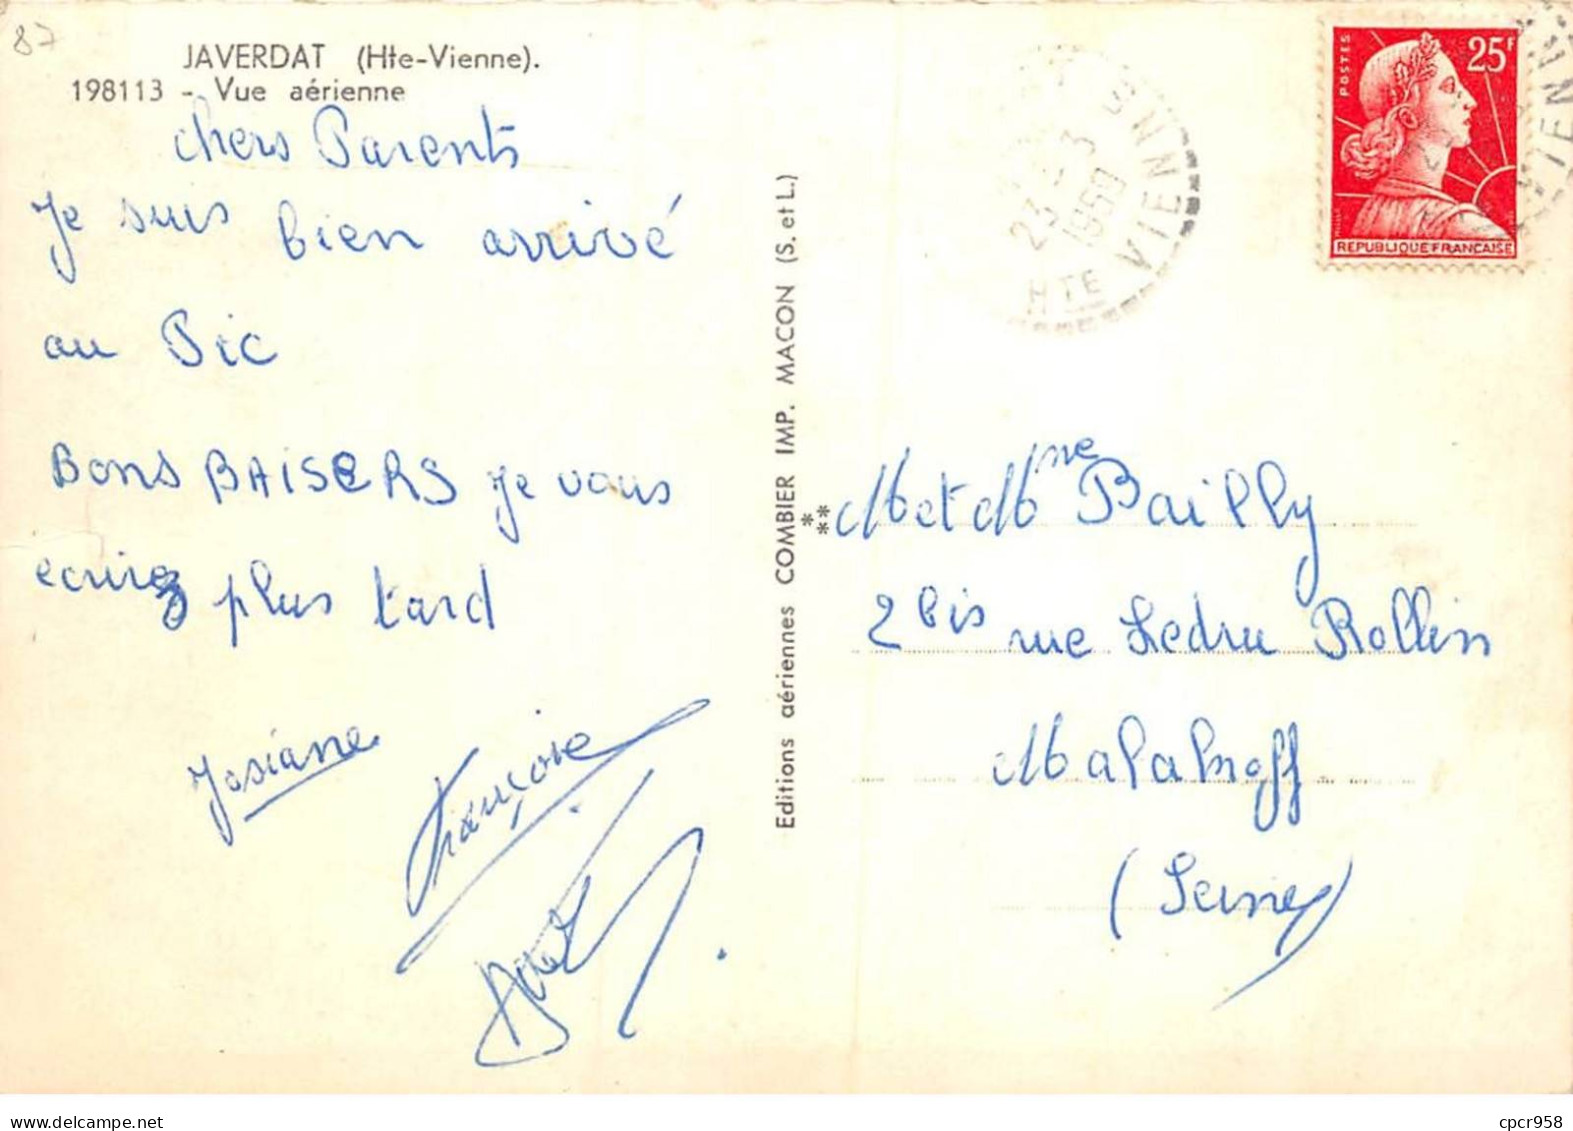 87
JAVERDAT (Hte-Vienne).
198113 - Vue aérienne
chers Parents
Je suis bien arrivé
au Pic
Bons BAISERS Je vous
ecrirez plus tard
Josiane
Françoise
Editions aériennes COMBIER IMP. MACON (S. et L.)
23 -3
1959
HTE VIENNE
POSTES
25F
REPUBLIQUE FRANCAISE
VIENN
M et Mme Bailly
2 bis rue Ledru Rollin
Malakoff
(Seine)
cpcr958